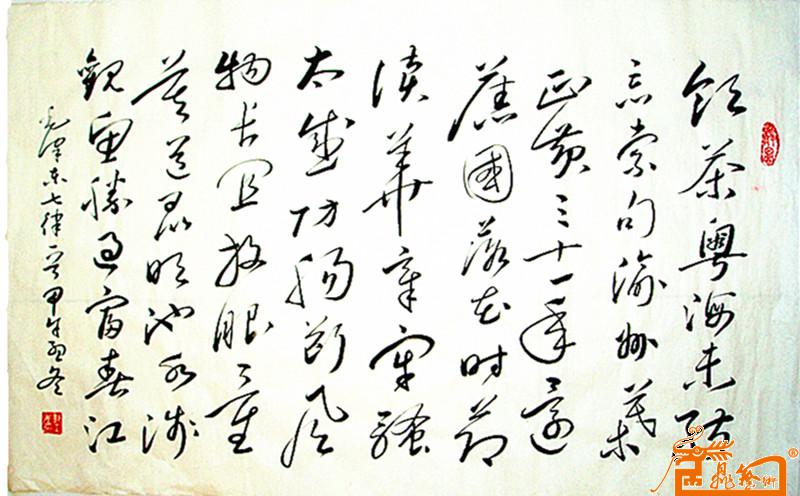 饮茶粤海未能
忘索句渝州葉
正黄三十一年還
舊國落花时节
读華章牢骚
太盛防肠断风
物长宜放眼量
莫道昆明池水浅
觀鱼勝过富春江
毛泽东七律一首甲午孟冬